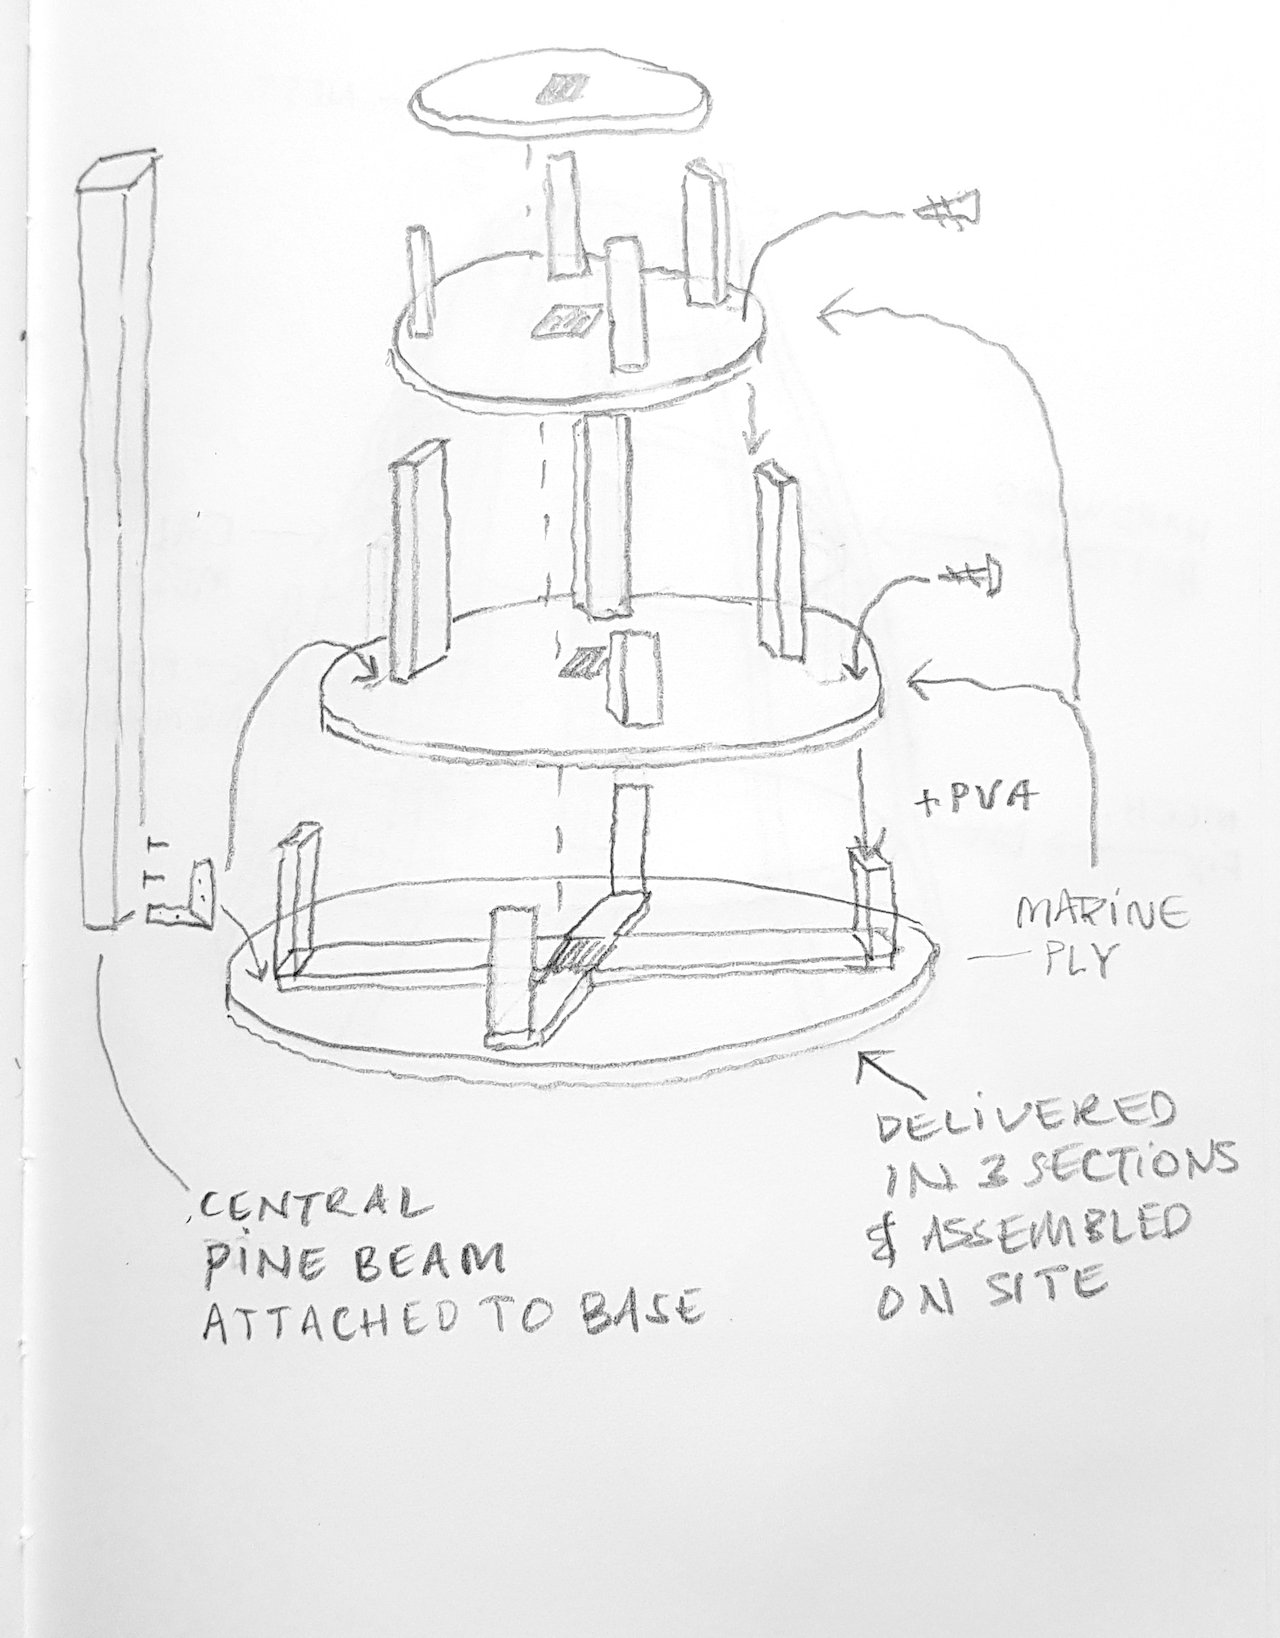 + PVA
MARINE
PLY
DELIVERED
IN 3 SECTIONS
& ASSEMBLED
ON SITE
CENTRAL
PINE BEAM
ATTACHED TO BASE